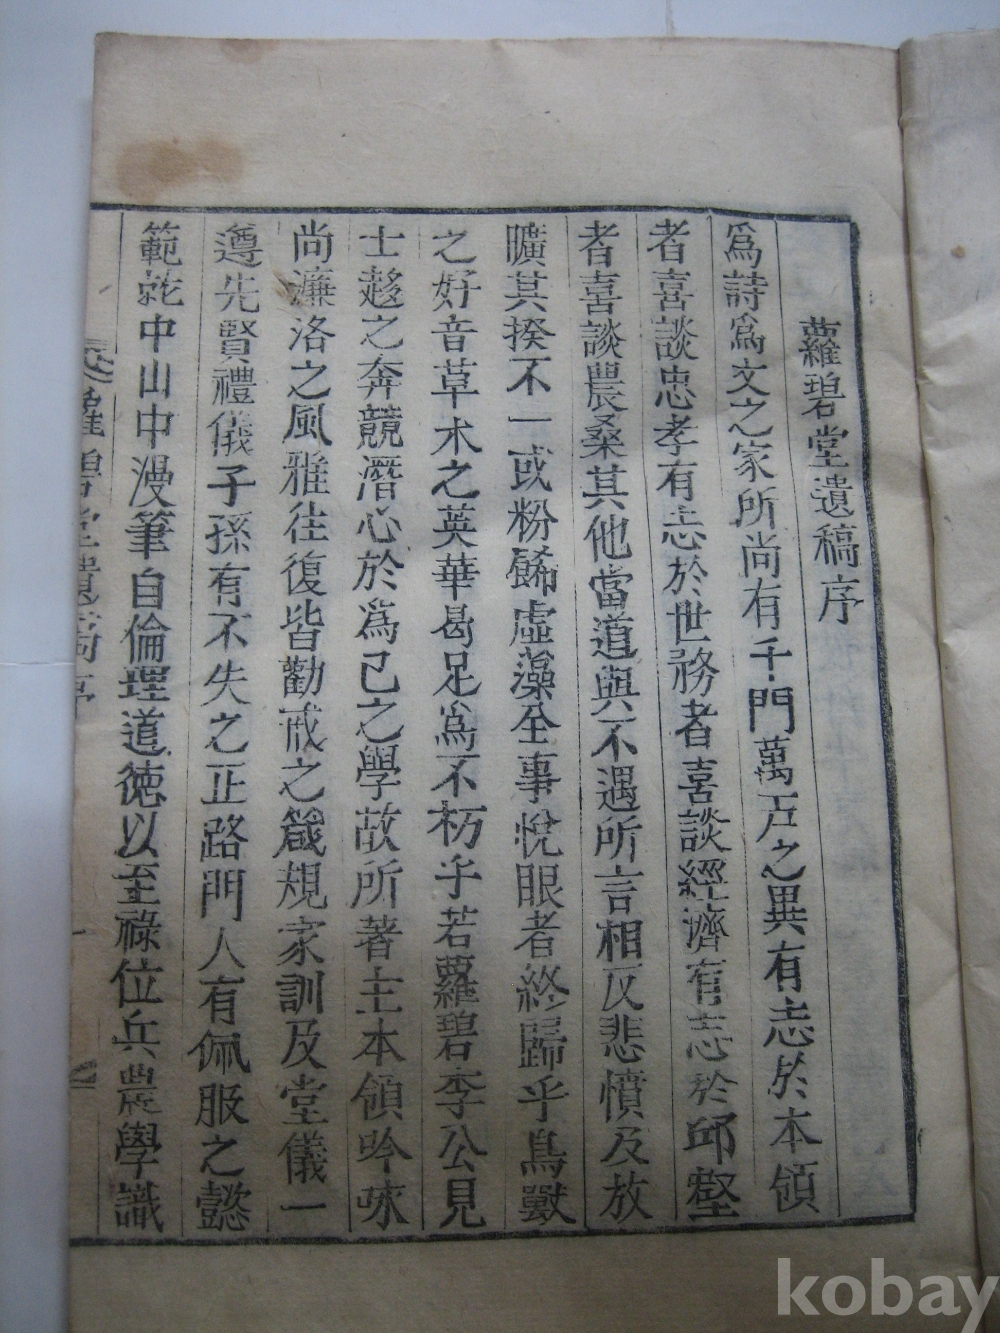 蘿碧堂遺稿序
爲詩爲文之家所尚有千門萬戶之異有志於本領
者喜談忠孝有志於世務者喜談經濟有志於邱壑
者喜談農桑其他當道與不遇所言相反悲憤及放
曠其揆不一或粉餙虛藻全事悅眼者終歸乎鳥獸
之好音草木之英華曷足爲不朽乎若蘿碧李公見
士趍之奔競潛心於爲己之學故所著主本領吟咏
尚濂洛之風雅往復皆勸戒之箴規家訓及堂儀一
遵先賢禮儀子孫有不失之正路門人有佩服之懿
範乾中山中漫筆自倫理道德以至祿位兵農學識
蘿碧堂遺稿序
kobay